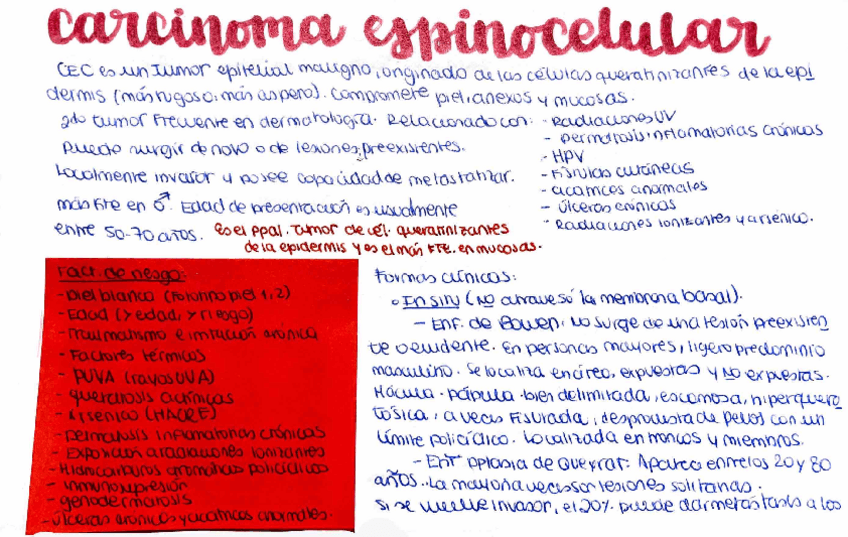 carcinoma espinocelular
CEC es un Tumor epitelial maligno, originado de las células queratinizantes de la epi
dermis (más rugoso: más aspero). Compromete piel, anexos y mucosas.
2do tumor frecuente en dermatología. Relacionado con: - Radiaciones UV
- Dermatosis inflamatorias crónicas
Puede surgir de novo o de lesiones preexistentes.
- HPV
- Fístulas cutáneas
Localmente invasor y posee capacidad de metastatizar.
- cicatrices anormales
más fte en ♂. Edad de presentación es usualmente
- úlceras crónicas
- Radiaciones ionizantes y arsénico.
entre 50-70 años. Es el ppal. tumor de cél. queratinizantes
de la epidermis y es el más fte. en mucosas.
Fact. de riesgo:
- piel blanca (fototipo piel 1, 2)
- Edad (> edad, > riesgo)
- Traumatismo e irritación crónica
- Factores térmicos
- PUVA (rayos UVA)
- queratosis actínicas
- Arsénico (HACRE)
- Dermatosis inflamatorias crónicas
- Exposición a radiaciones ionizantes
- Hidrocarburos aromáticos policíclicos
- inmunosupresión
- genodermatosis
- úlceras crónicas y cicatrices anormales.
Formas clínicas:
o In situ (No atravesó la membrana basal).
- Enf. de Bowen: No surge de una lesión preexisten
te o evidente. En personas mayores, ligero predominio
masculino. Se localiza en áreas expuestas y NO expuestas.
Mácula - pápula - bien delimitada, escamosa, hiperquera
tósica, a veces fisurada, desprovista de pelos con un
límite policíclico. Localizada en troncos y miembros.
- Eritroplasia de Queyrat: Aparece entre los 20 y 80
años. La mayoría veces son lesiones solitarias.
Si se vuelve invasor, el 20% puede dar metástasis a los